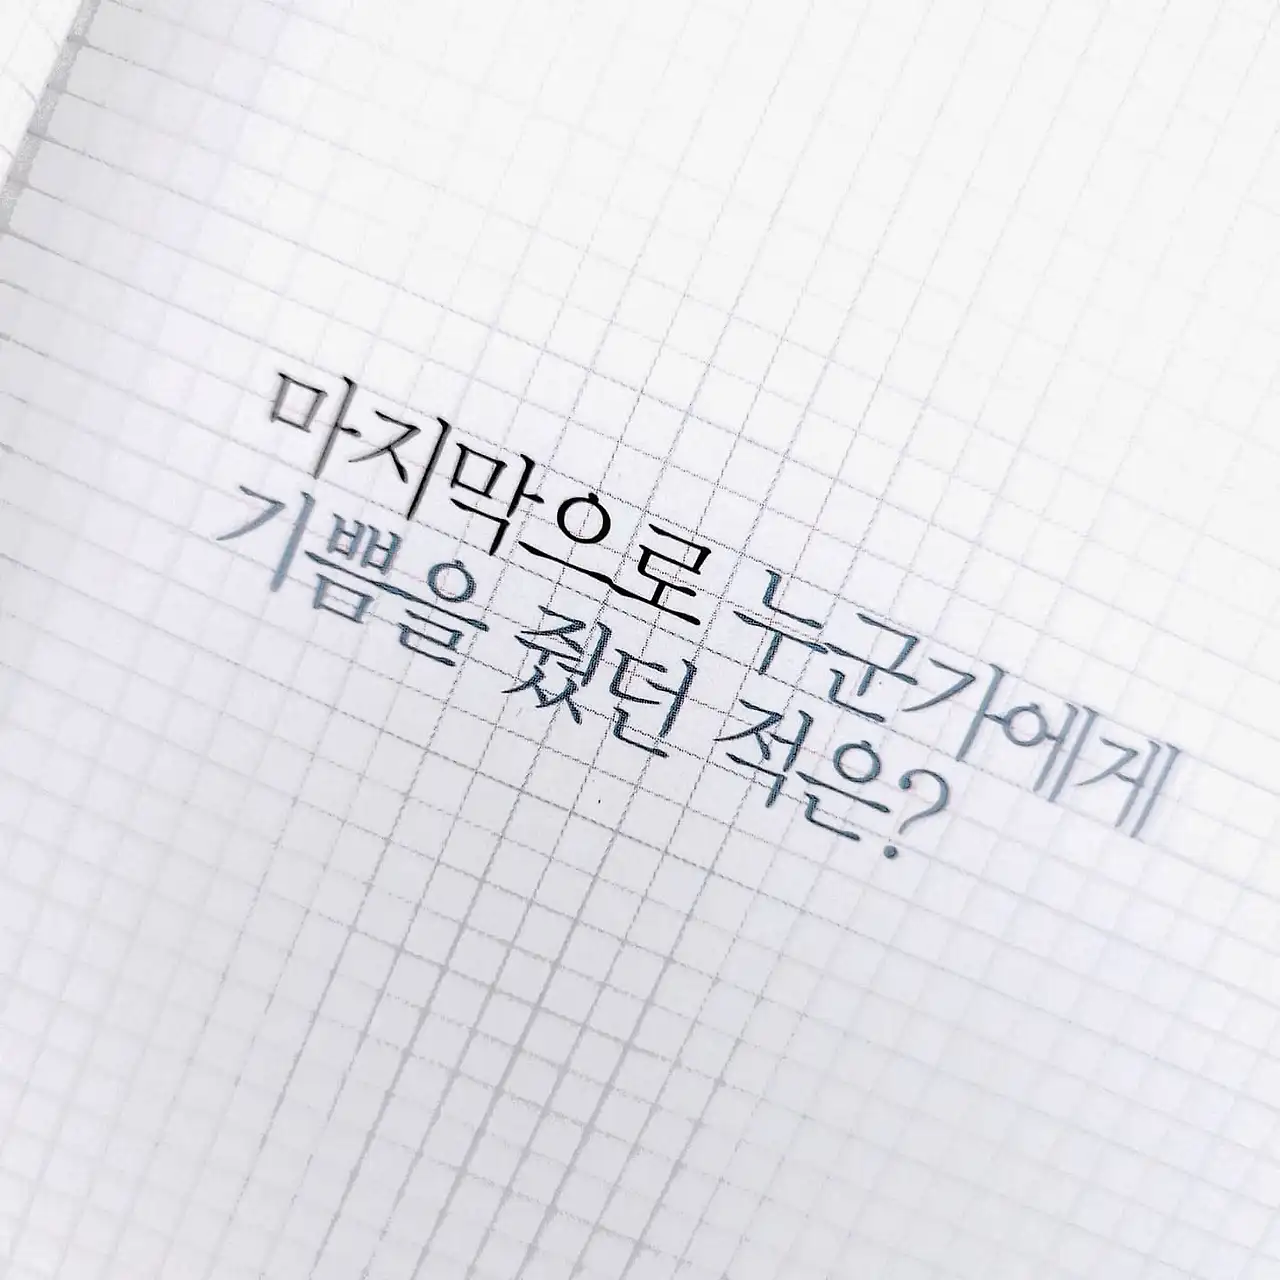 마지막으로 누군가에게
기쁨을 줬던 적은?